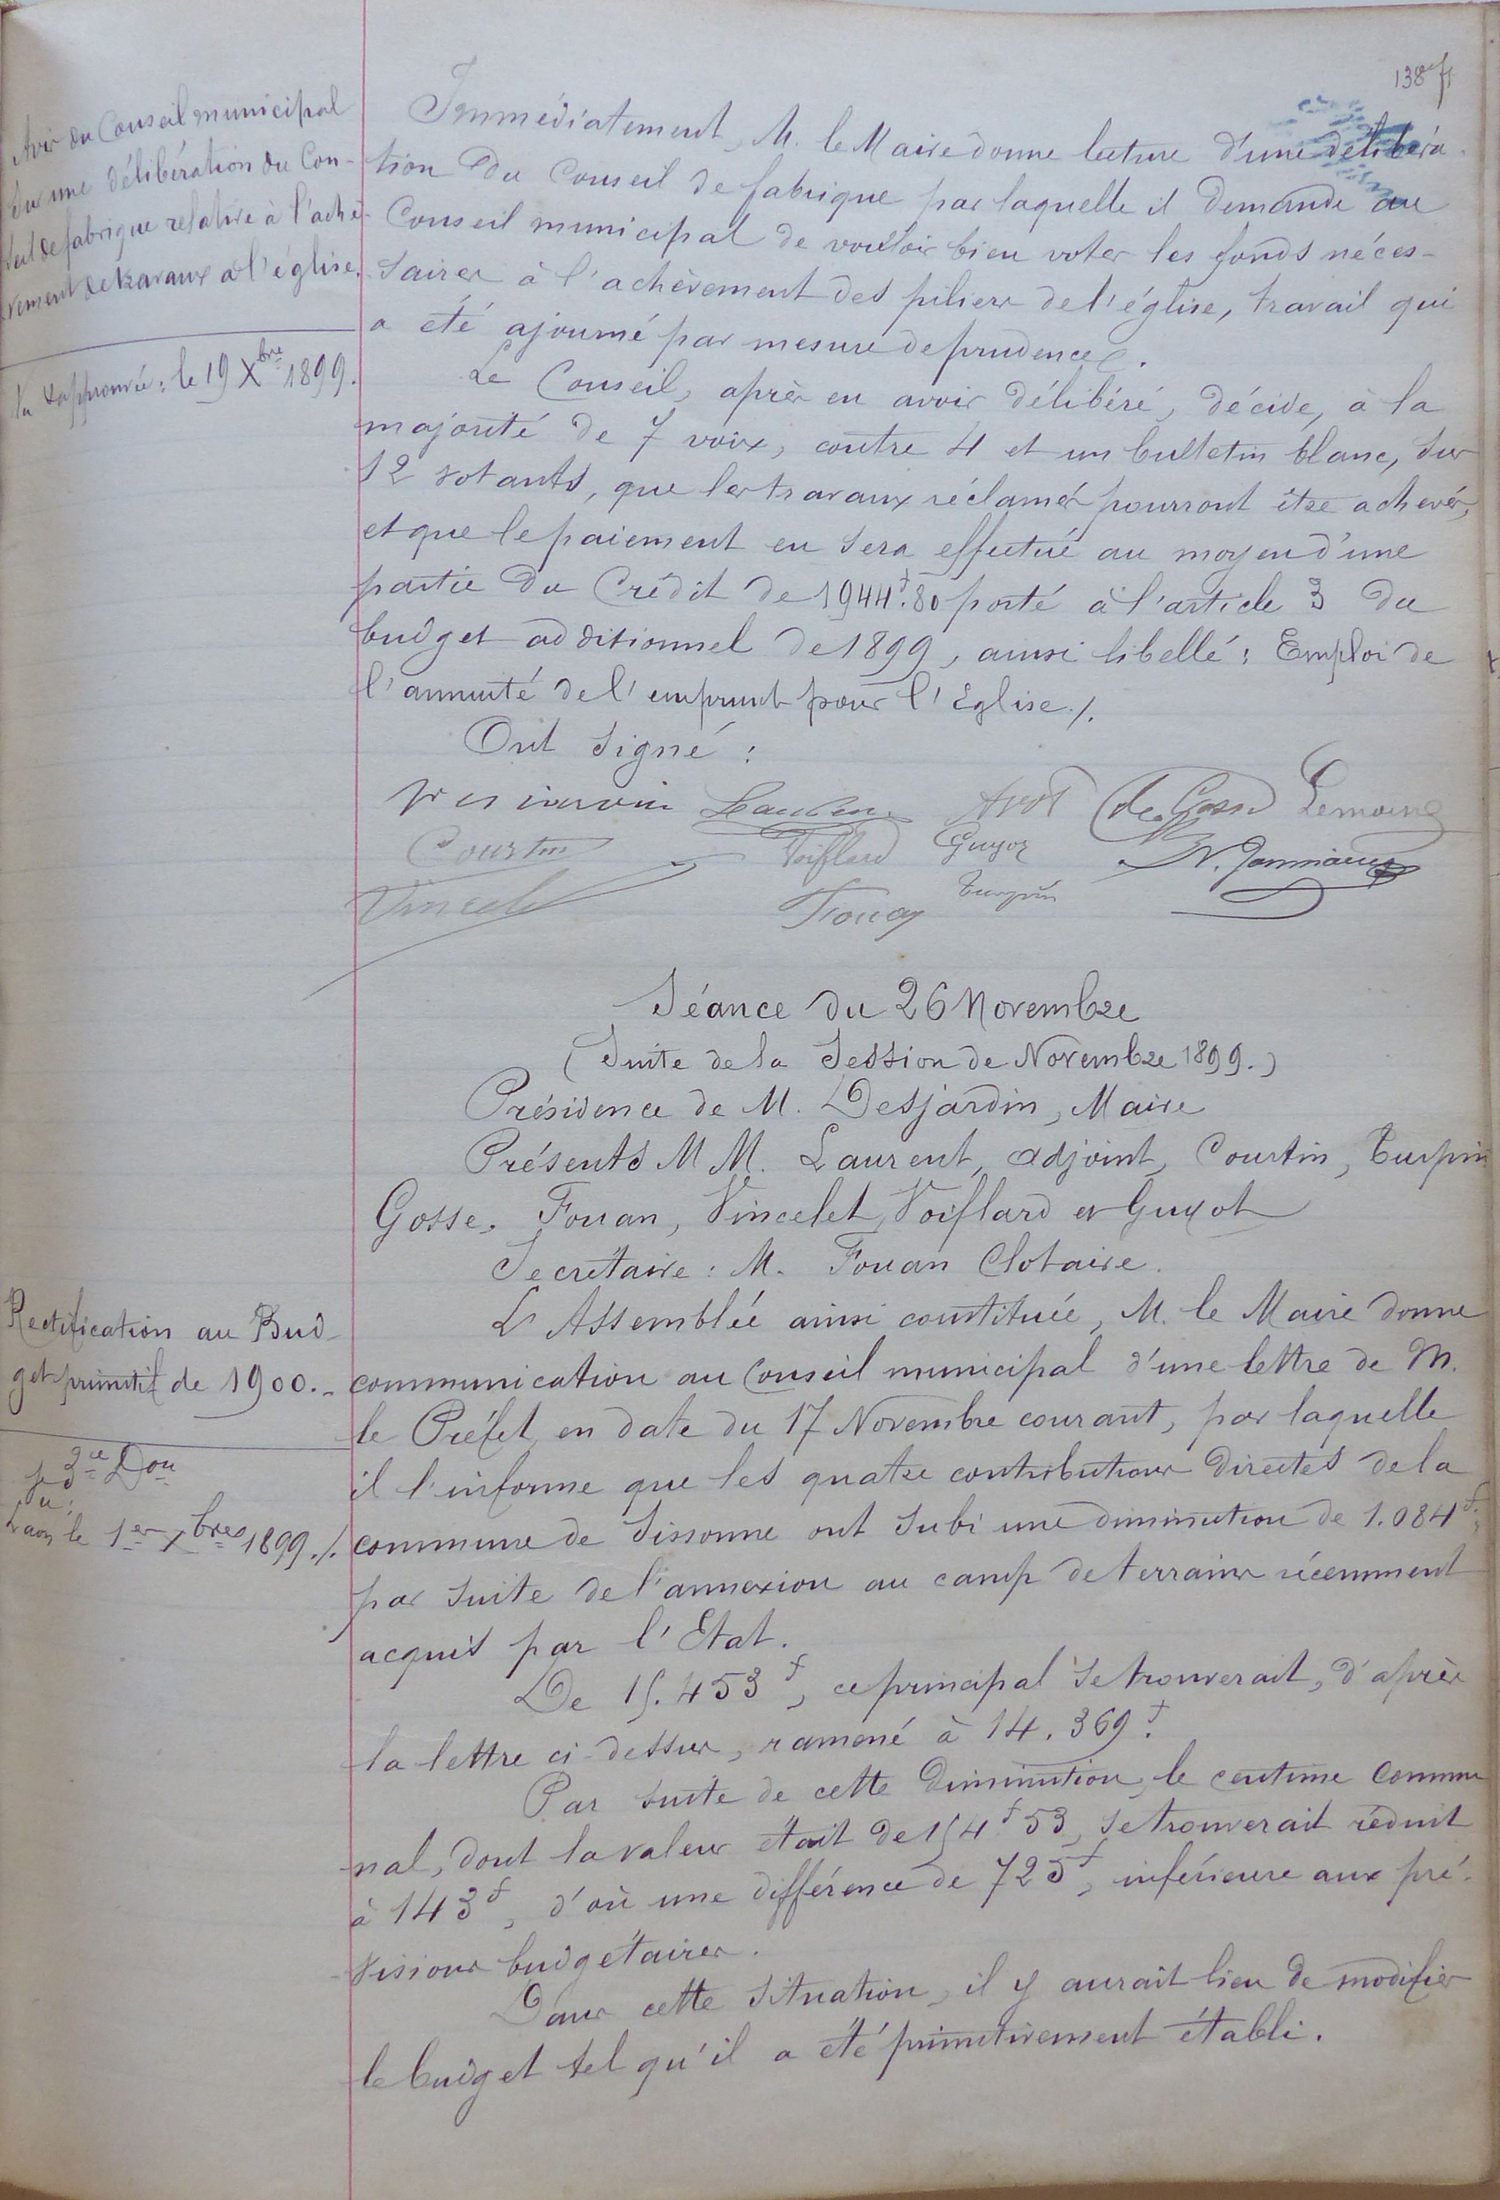 138
Avis du Conseil municipal
sur une délibération du Con-
seil de fabrique relative à l'achè-
vement de travaux à l'église.
Vu & approuvée : le 19 Xbre 1899.
Immédiatement, M. le Maire donne lecture d'une délibéra-
tion du Conseil de fabrique par laquelle il demande au
Conseil municipal de vouloir bien voter les fonds néces-
saires à l'achèvement des piliers de l'église, travail qui
a été ajourné par mesure de prudence.
Le Conseil, après en avoir délibéré, décide, à la
majorité de 7 voix, contre 4 et un bulletin blanc, sur
12 votants, que les travaux réclamés pourront être achevés,
et que le paiement en sera effectué au moyen d'une
partie du Crédit de 1944f.80 porté à l'article 3 du
budget additionnel de 1899, ainsi libellé : Emploi de
l'annuité de l'emprunt pour l'Eglise./.
Ont signé :
Avot de Gosse Lemoine
Courtin Voiflard Guyot N. Jonniaux
Vincelet Fouan Turpin
Séance du 26 Novembre
(Suite de la Session de Novembre 1899.)
Présidence de M. Desjardin, Maire
Présents MM. Laurent, adjoint, Courtin, Turpin
Gosse, Fouan, Vincelet, Voiflard et Guyot
Secrétaire : M. Fouan Clotaire.
Rectification au Bud-
get primitif de 1900.-
3ce Don
Vu :
Laon, le 1er Xbre 1899./.
L'Assemblée ainsi constituée, M. le Maire donne
communication au Conseil municipal d'une lettre de M.
le Préfet, en date du 17 Novembre courant, par laquelle
il l'informe que les quatre contributions directes de la
commune de Sissonne ont subi une diminution de 1.084f.,
par suite de l'annexion au camp de terrains récemment
acquis par l'Etat.
De 15.453f, ce principal se trouverait, d'après
la lettre ci-dessus, ramené à 14.369f.
Par suite de cette diminution, le centime commu
nal, dont la valeur était de 154f53, se trouverait réduit
à 143f, d'où une différence de 725f, inférieure aux pré-
visions budgétaires.
Dans cette situation, il y aurait lieu de modifier
le budget tel qu'il a été primitivement établi.